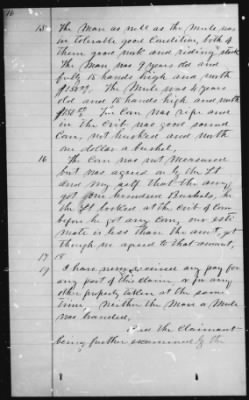 16
15 The Mare as well as the Mule was
in tolerable good Condition, both of
them good work and riding stock
The Mare was 9 years old and
fully 15 hands high and worth
$150.00. The Mule was 4 years
old and 15 hands high and worth
$150.00 The Corn was ripe and
in the Crib, was good sound
Corn, not husked and worth
one dollar a bushel,
16 The Corn was not measured
but was agreed on by the Lt
and my self that the army
got one hundred Bushels, he
the Lt looked at the Crib of Corn
before he got any Corn, our esti
mate is less than the amt, yet
though we agreed to that amount,
17 18
19 I have never received any pay for
any part of this claim, or for any
other property taken at the same
time. Neither the Mare or Mule
was branded,
the Claimant
being further examined by the